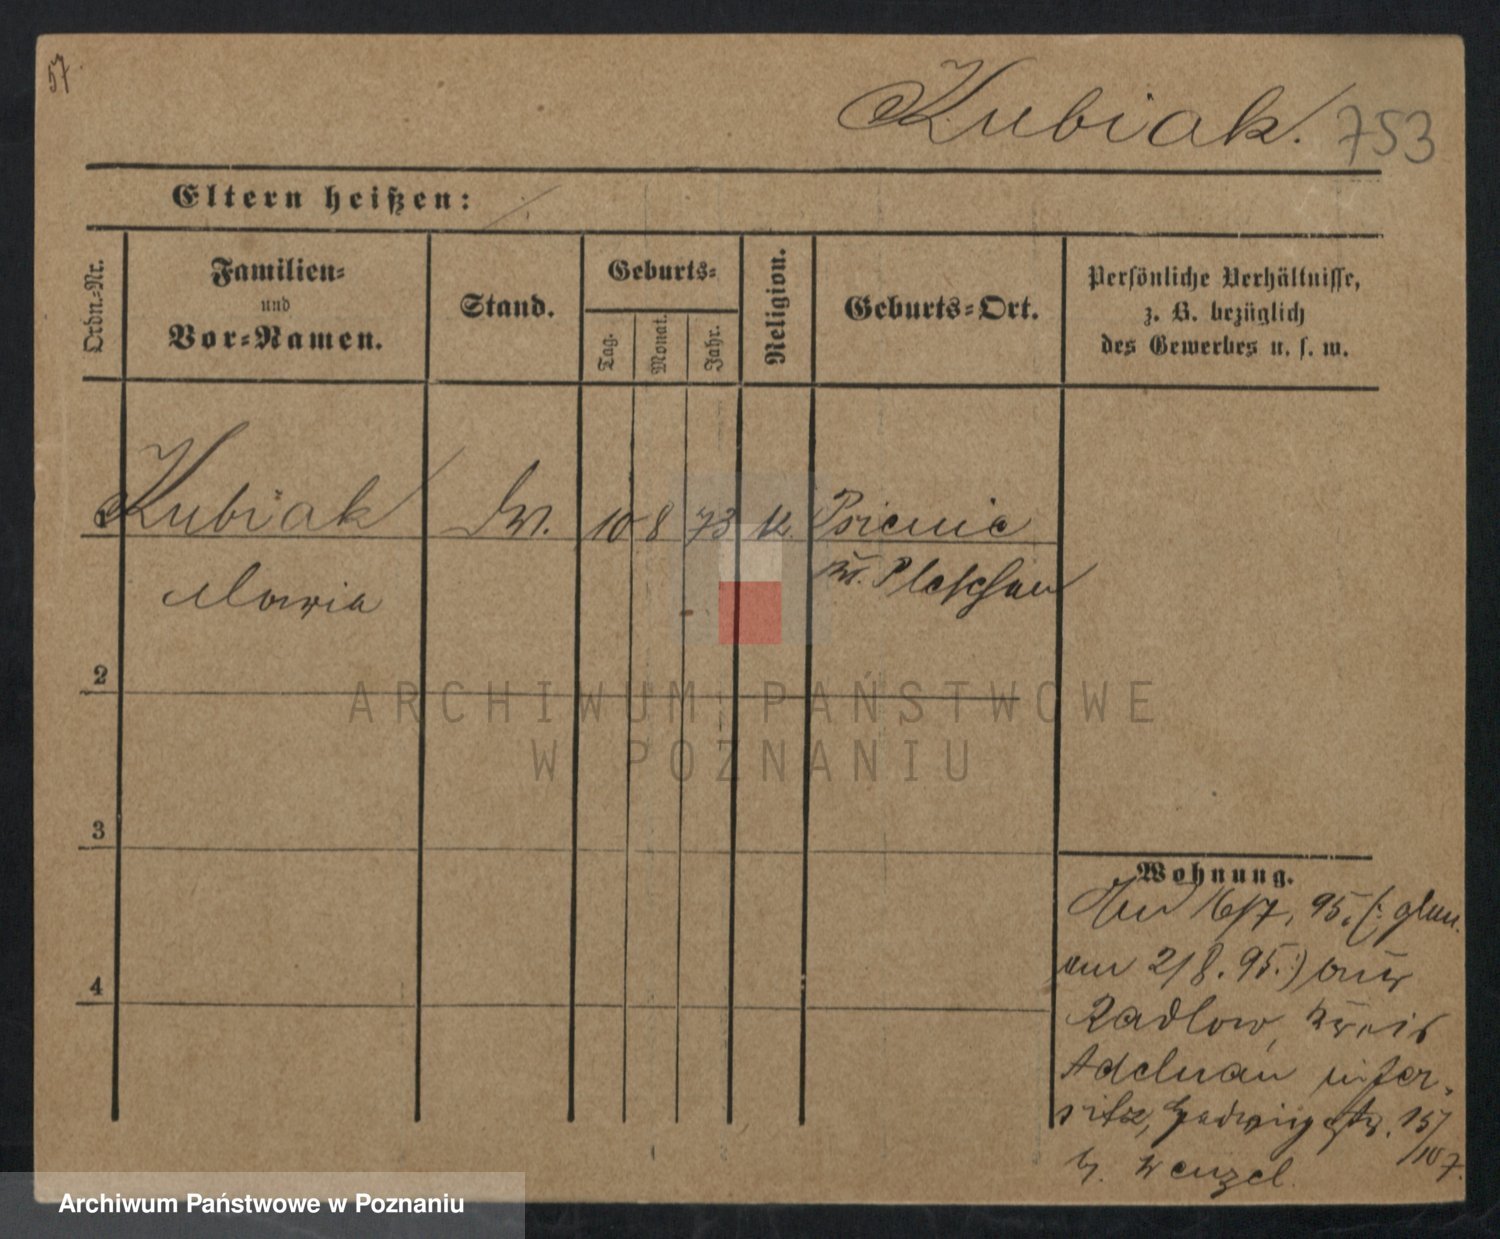 57.
Kubiak. 753
Eltern heißen:
Ordn.-Nr.
Familien-
und
Vor-Namen.
Stand.
Geburts-
Tag.
Monat.
Jahr.
Religion.
Geburts-Ort.
Persönliche Verhältnisse,
z. B. bezüglich
des Gewerbes u. s. w.
Kubiak 10 8 73 k.
Maria Kr. Pleschen
2
3
4
Wohnung.
16/7. 95. (:
am 2/8. 95.:) aus
Radlow, Kreis
Adelnau in Jer-
sitz, Hedwigstr. 15/
b. Wenzel.
ARCHIWUM PAŃSTWOWE
W POZNANIU
Archiwum Państwowe w Poznaniu